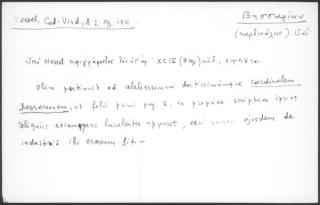 Nessel, Cod. Vind, A 2, σg. 170
Βησσαρίων
(καρδινάλιος)
Ὑπὸ Nessel περιγράφεται
Olim pertinuit ad celeberrimum doctissimumque Cardinalem
Bessarionem, ut folii primi pag. 2. ex propria scriptura ipsius
reliquiis etiamnunc luculenter apparet, etsi nomen ejusdem de
industriâ ibi erasum sit. —